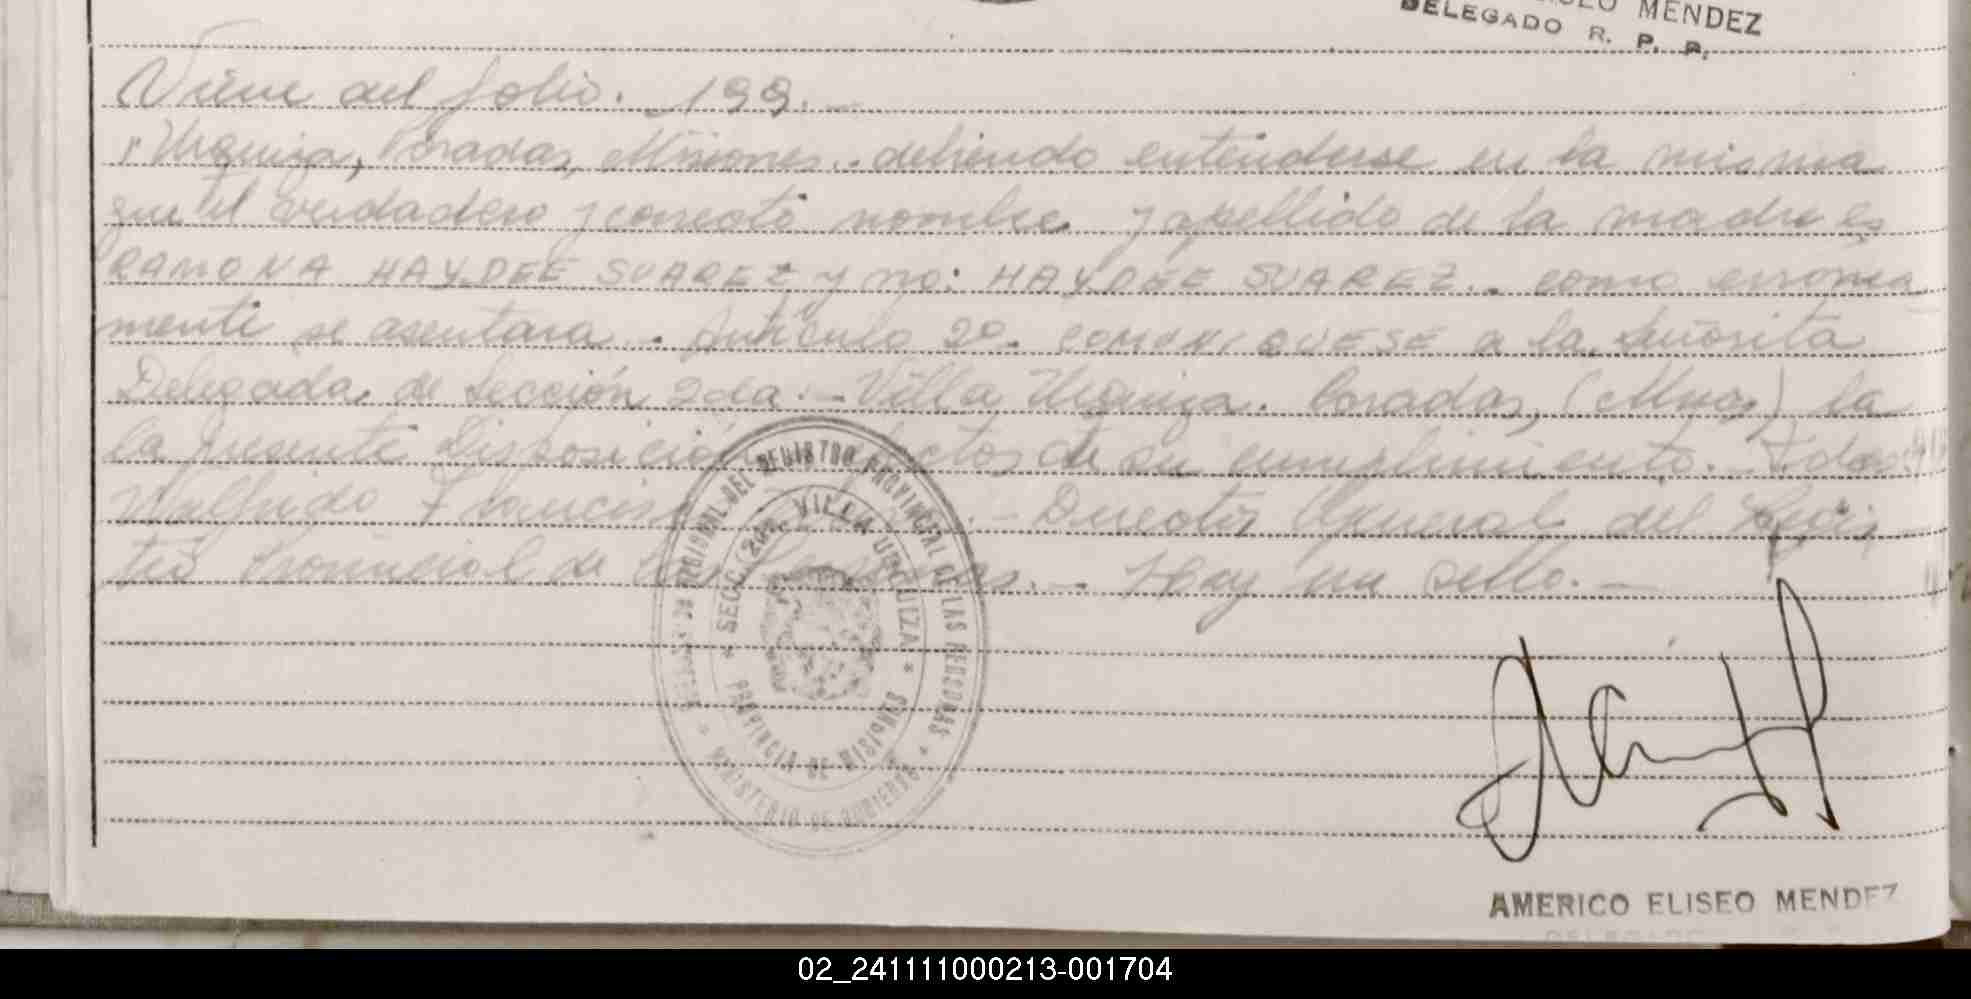 ELISEO MENDEZ
DELEGADO R. P. P.
Viene del folio. 199.-
"Urquiza, Posadas, Misiones.. debiendo entenderse en la misma
que el verdadero y correcto nombre y apellido de la madre es
RAMONA HAYDEE SUAREZ y no: HAYDEE SUAREZ.. como erronea
mente se asentara. Artículo 2º. COMUNIQUESE a la Señorita
Delegada de Sección 2da.- Villa Urquiza. Posadas, (Mnes) la
la presente Disposición efectos de su cumplimiento.- Fdo
Walfrido Francisco .- Director General del Regis
tro Provincial de las Personas.- Hay un sello.-
DEL REGISTRO PROVINCIAL DE LAS PERSONAS
* SECC. 2da. VILLA URQUIZA *
PROVINCIA DE MISIONES
* MINISTERIO DE GOBIERNO *
AMERICO ELISEO MENDEZ
02_241111000213-001704